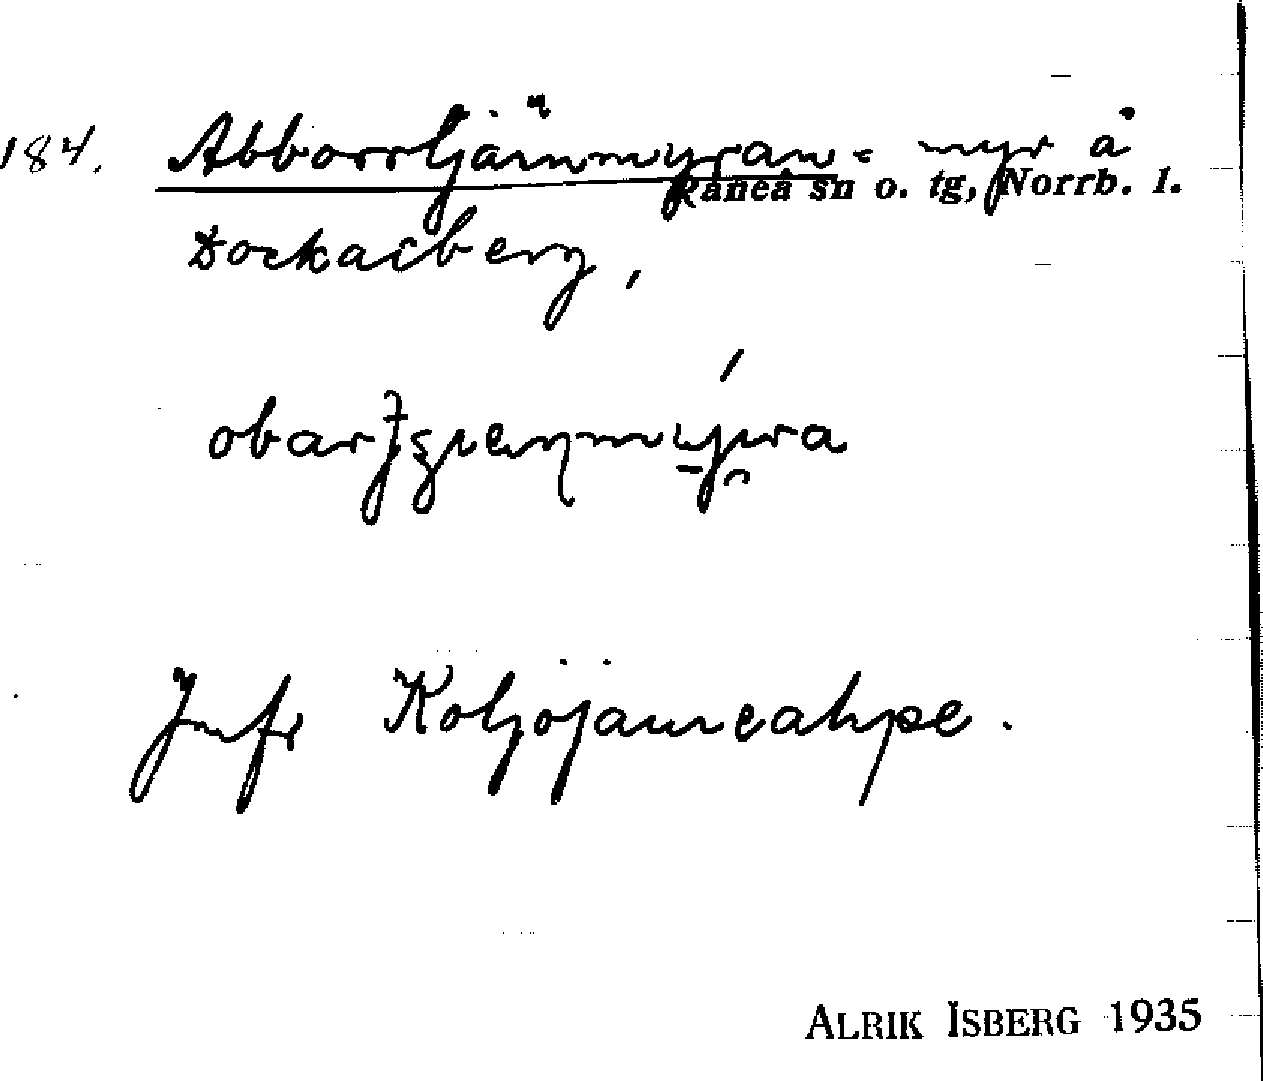 184. Abborrtjärnmyran = myr å
Råneå sn o. tg, Norrb. l.
Dockasberg,
Jmfr Koljojaureahpe.
ALRIK ISBERG 1935